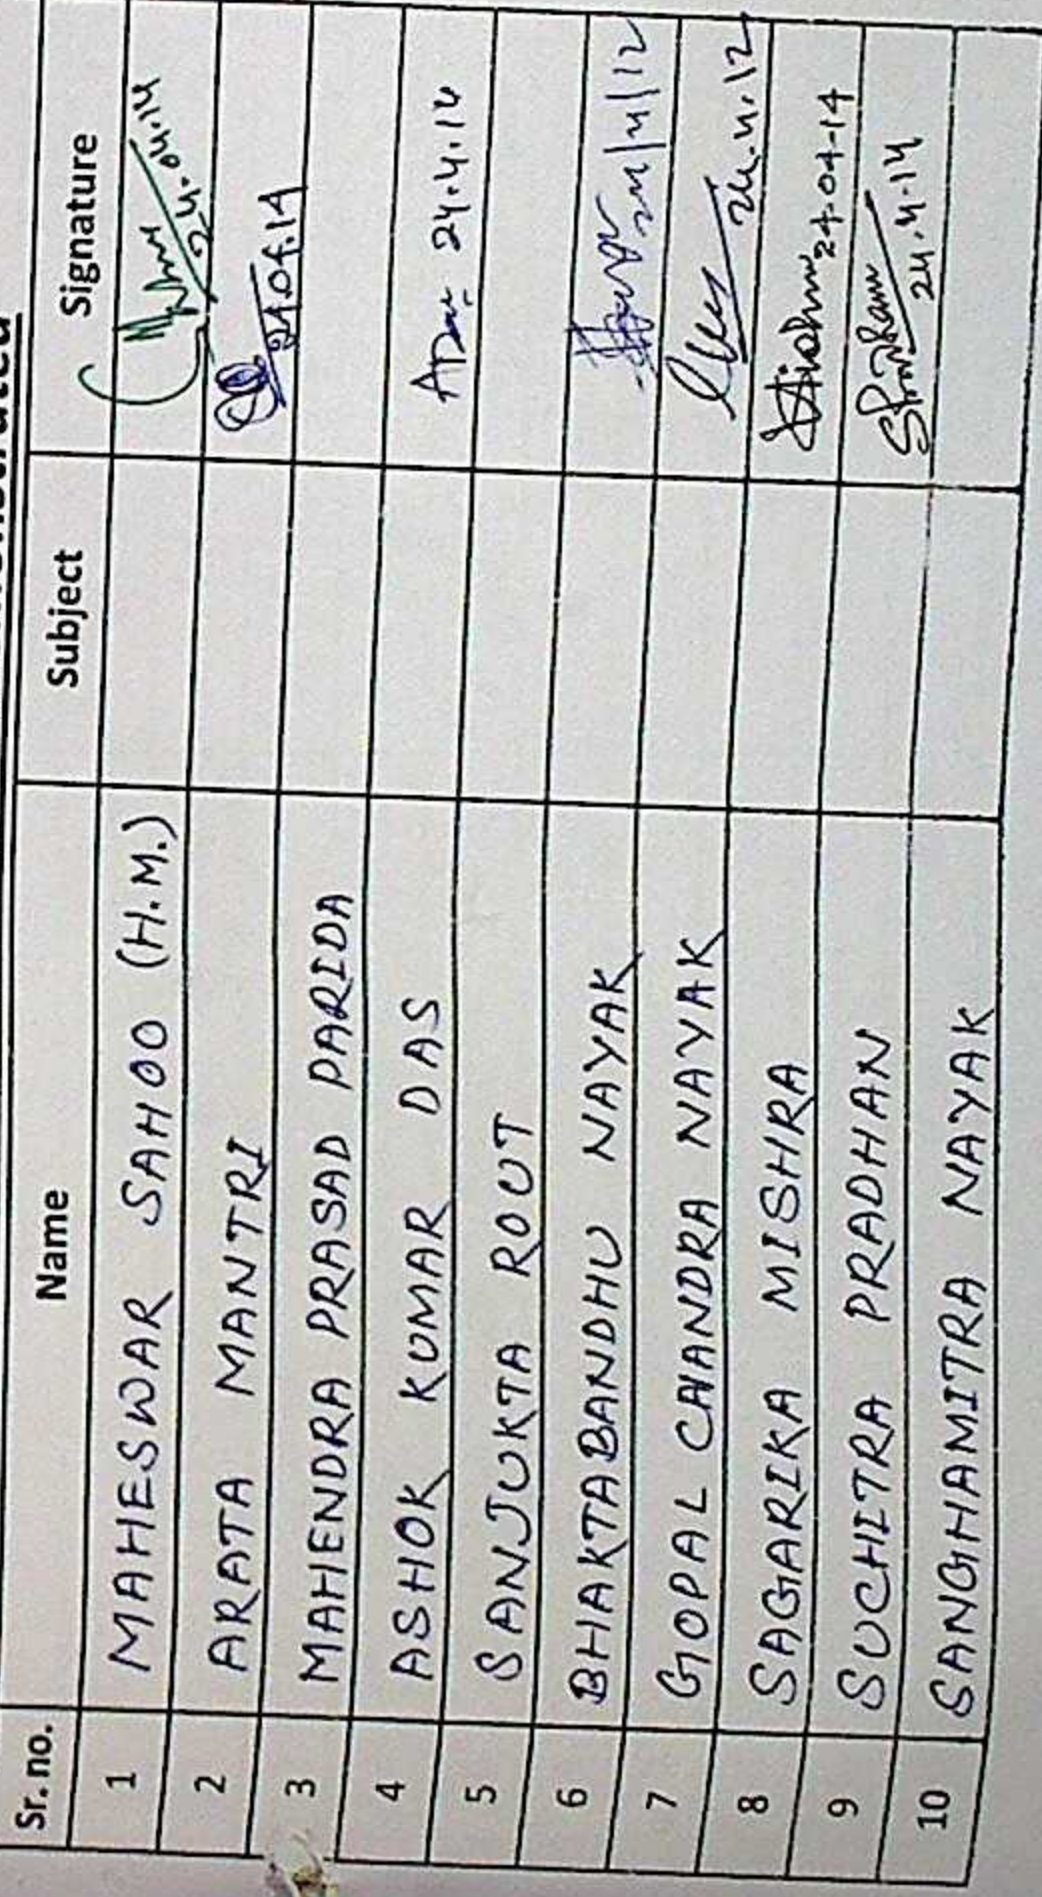 Sr. no. Name Subject Signature
1 MAHESWAR SAHOO (H.M.) 24.04.14
2 ARATA MANTRI 24.04.14
3 MAHENDRA PRASAD PARIDA
4 ASHOK KUMAR DAS 24.4.14
5 SANJUKTA ROUT
6 BHAKTABANDHU NAYAK
7 GOPAL CHANDRA NAYAK
8 SAGARIKA MISHRA 24-04-14
9 SUCHITRA PRADHAN 24.4.14
10 SANGHAMITRA NAYAK